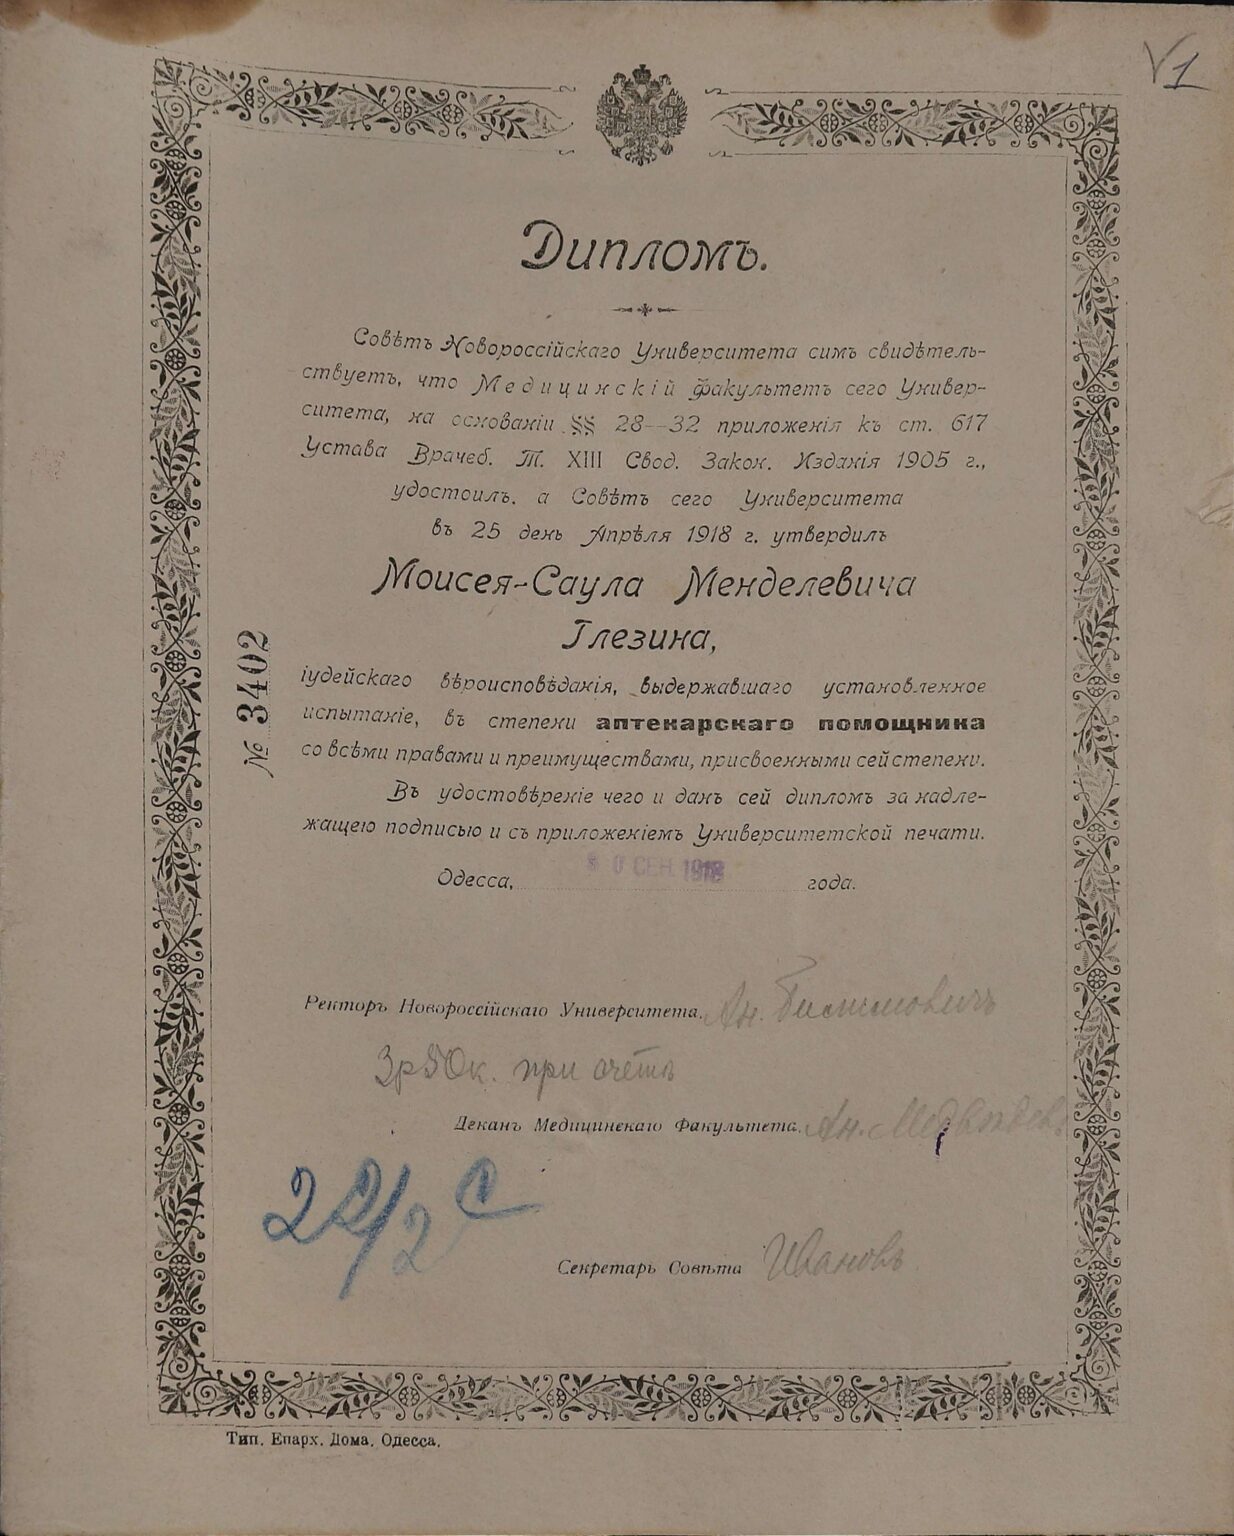 √1
Дипломъ.
Совѣтъ Новороссійскаго Университета симъ свидѣтель-
ствуетъ, что Медицинскій факультетъ сего Универ-
ситета, на основаніи §§ 28--32 приложенія къ ст. 617
Устава Врачеб. Т. XIII Свод. Закон. Изданія 1905 г.,
удостоилъ, а Совѣтъ сего Университета
въ 25 день Апрѣля 1918 г. утвердилъ
Моисея-Саула Менделевича
Глезина,
іудейскаго вѣроисповѣданія, выдержавшаго установленное
испытаніе, въ степени аптекарскаго помощника
со всѣми правами и преимуществами, присвоенными сей степени.
Въ удостовѣреніе чего и данъ сей дипломъ за надле-
жащею подписью и съ приложеніемъ Университетской печати.
№ 3402
СЕН. 1918
Одесса, года.
Ректоръ Новороссійскаго Университета.
при
Деканъ Медицинскаго Факультета. Ан. Медвѣдев
22/2 С
Секретарь Совѣта Ивановъ
Тип. Епарх. Дома, Одесса.